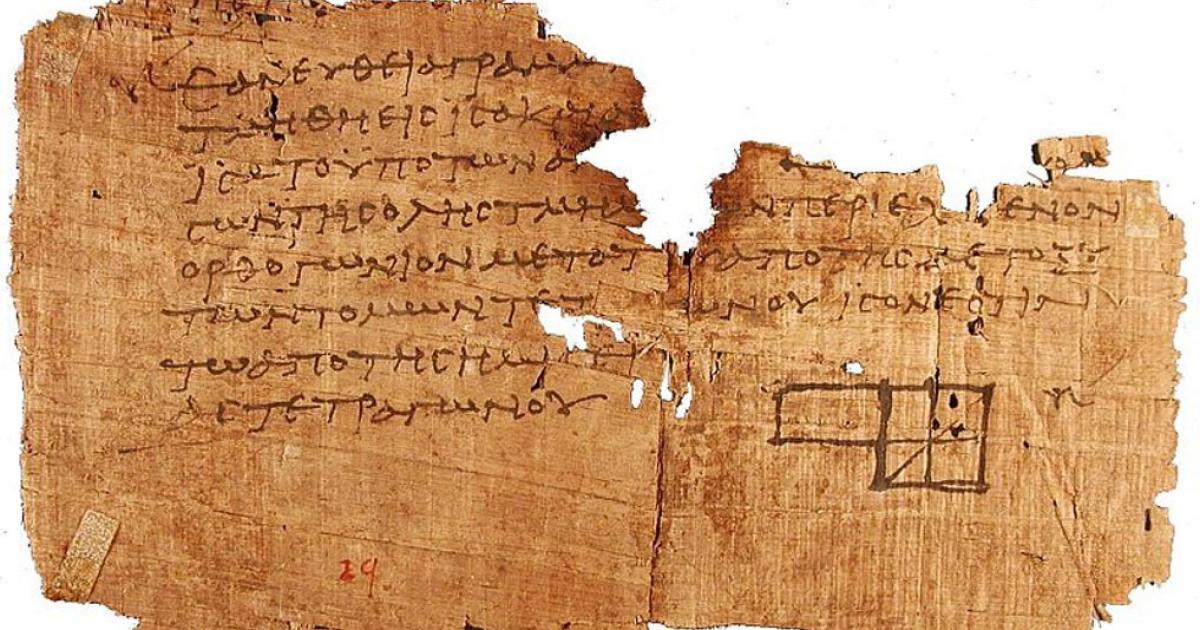 ΕΑΝ ΕΥΘΕΙΑ ΓΡΑΜΜ
ΤΜΗΘΗ ΕΙϹ ΙϹΑ Κ
ΙϹΑ ΤΟ ΥΠΟ ΤΩΝ
ϹΩΝ ΤΗϹ ΟΛΗϹ ΤΜΗΜ ΩΝ ΠΕΡΙΕΧ ΜΕΝΟΝ
ΟΡΘΟΓΩΝΙΟΝ ΜΕΤΑ ΤΟΥ ΑΠΟ ΤΗϹ ΜΕΤΟΞΥ
ΤΩΝ ΤΟΜΩΝ ΤΕΤ ΩΝΟΥ ΙϹΟΝ ΕϹΤΙΝ
ΤΩ ΑΠΟ ΤΗϹ ΗΜΙ
ΑϹ ΤΕΤΡΑΓΩΝΟΥ
29